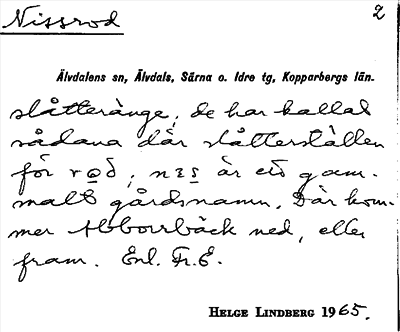 Nissrod
2
Älvdalens sn, Älvdals, Särna o. Idre tg, Kopparbergs län.
slåtteränge, de har kallat
sådana där slåtterställen
för rod; nɪs är ett gam-
malt gårdsnamn. Där kom-
mer Abborrbäck ned, eller
fram. Enl. Fr.E.
HELGE LINDBERG 1965.